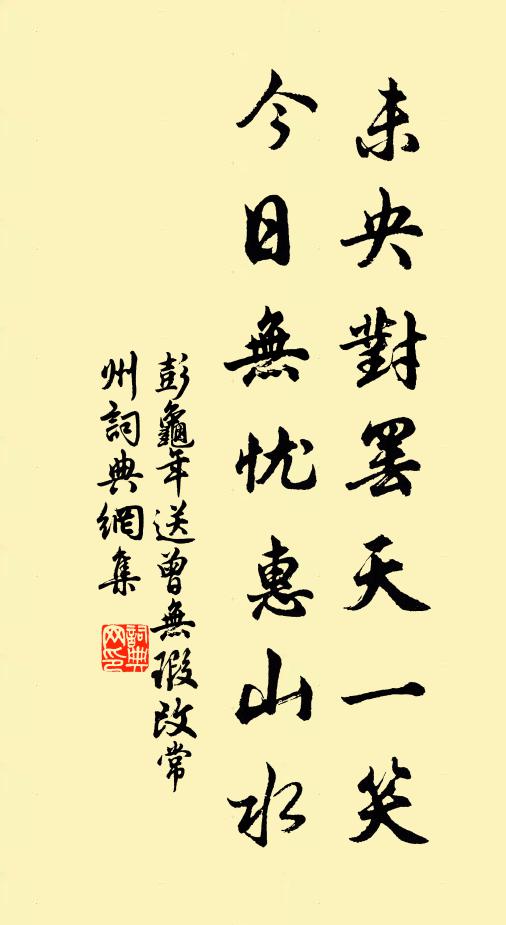 未央對罢天一笑
今日無忧惠山水
彭龜年送曾無瑕改常
州詞典網集
詞典
网印